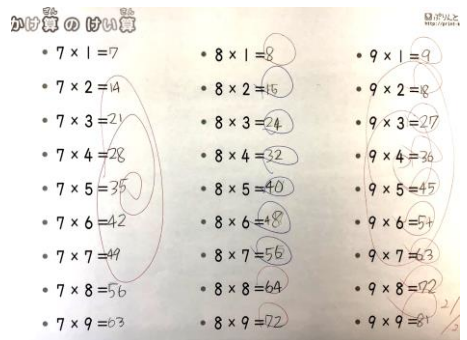 かけ算のけい算
ざん ざん
ぷりんと
• 7 × 1 = 7
• 7 × 2 = 14
• 7 × 3 = 21
• 7 × 4 = 28
• 7 × 5 = 35
• 7 × 6 = 42
• 7 × 7 = 49
• 7 × 8 = 56
• 7 × 9 = 63
• 8 × 1 = 8
• 8 × 2 = 16
• 8 × 3 = 24
• 8 × 4 = 32
• 8 × 5 = 40
• 8 × 6 = 48
• 8 × 7 = 56
• 8 × 8 = 64
• 8 × 9 = 72
• 9 × 1 = 9
• 9 × 2 = 18
• 9 × 3 = 27
• 9 × 4 = 36
• 9 × 5 = 45
• 9 × 6 = 54
• 9 × 7 = 63
• 9 × 8 = 72
• 9 × 9 = 81